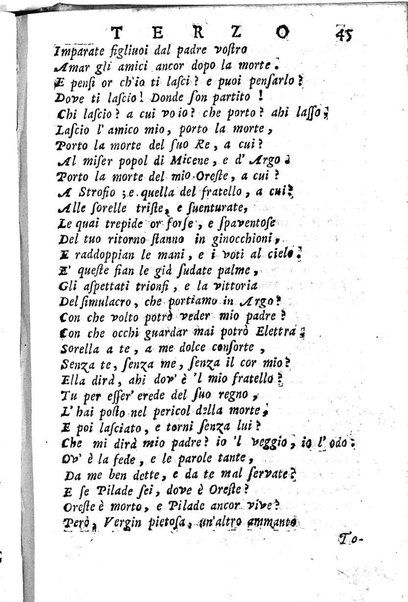 TERZO 45
Imparate figliuoi dal padre vostro
Amar gli amici ancor dopo la morte.
E pensi or ch'io ti lasci? e puoi pensarlo?
Dove ti lascio! Donde son partito!
Chi lascio? a cui voio? che porto? ahi lasso,
Lascio l'amico mio, porto la morte,
Porto la morte del suo Re, a cui?
Al miser popol di Micene, e d'Argo.
Porto la morte del mio Oreste, a cui?
A Strofio; e quella del fratello, a cui?
Alle sorelle triste, e suenturate,
Le quai trepide or forse, e spaventose
Del tuo ritorno stanno in ginocchioni,
E raddoppian le mani, e i voti al cielo.
E' queste fian le già sudate palme,
Gli aspettati trionfi, e la vittoria
Del simulacro, che portiamo in Argo?
Con che volto potrò veder mio padre?
Con che occhi guardar mai potrò Elettra,
Sorella a te, a me dolce consorte,
Senza te, senza me, senza il cor mio?
Ella dirà, ahi dov'è 'l mio fratello?
Tu per esser' erede del suo regno,
L'hai posto nel pericol della morte,
E poi lasciato, e torni senza lui?
Che mi dirà mio padre? io 'l veggio, io l'odo:
Ov'è la fede, e le parole tante,
Da me ben dette, e da te mal servate?
E se Pilade sei, dove è Oreste?
Oreste è morto, e Pilade ancor vive?
Però, Vergin pietosa, un'altro ammanto
To-